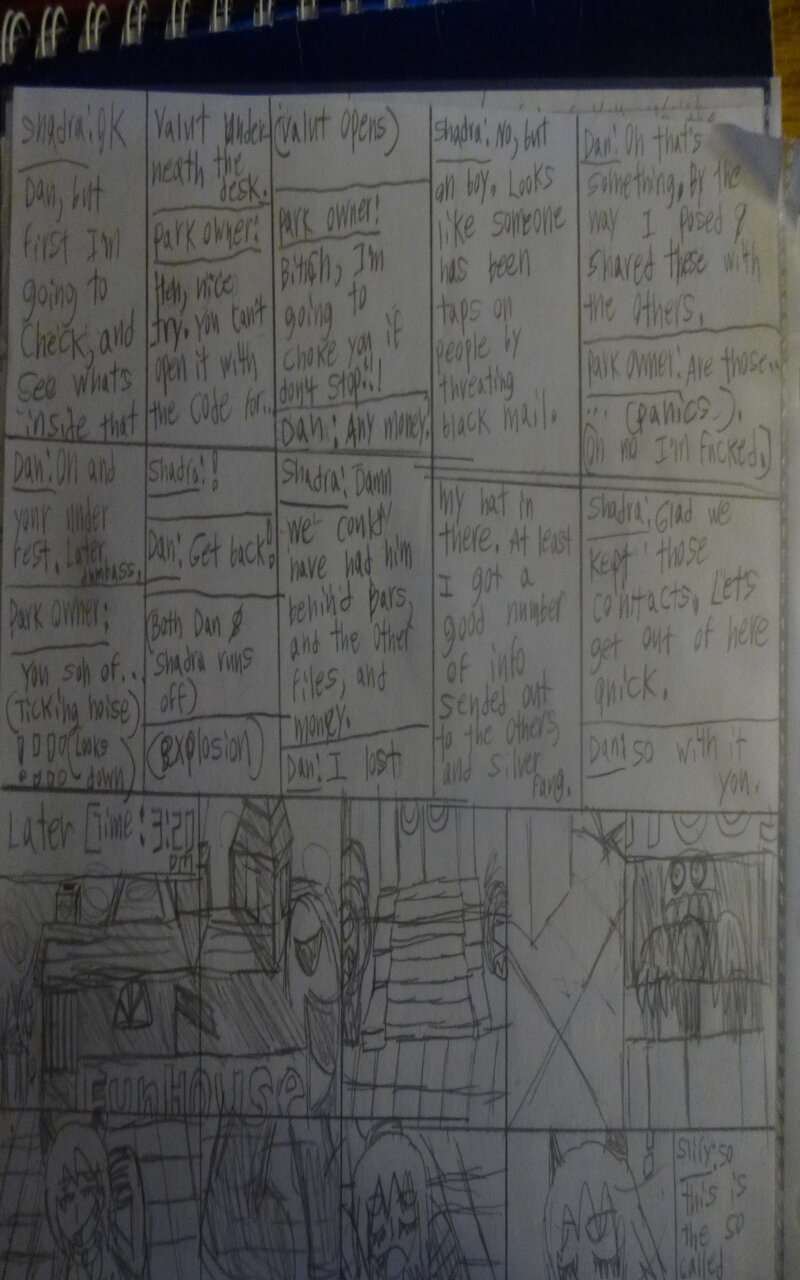 Shadra: OK
Dan, but
first I'm
going to
Check, and
see what's
inside that
Valut under
neath the
desk.
Park owner:
Heh, nice
try. You can't
open it with
the Code for...
(Valut opens)
Park owner:
Bitch, I'm
going to
choke you if
don't stop!!!
Dan: Any money?
Shadra: No, but
oh boy. Looks
like someone
has been
taps on
people by
threating
black mail.
Dan: Oh that's
something. By the
way I posed &
shared these with
the others.
Park owner: Are those...
... (panics..).
Oh no I'm fucked.
Dan: Oh and
your under
rest. Later
dumbass.
Park owner:
You son of...
(Ticking noise)
(Looks
down)
Shadra: !
Dan: Get back!
(Both Dan &
Shadra runs
off)
(Explosion)
Shadra: Damn
we could
have had him
behind bars,
and the other
files, and
money.
Dan: I lost
my hat in
there. At least
I got a
good number
of info
sended out
to the others
and Silver
Fang.
Shadra: Glad we
kept those
contacts. Let's
get out of here
quick.
Dan: So with it
you.
Later [Time: 3:20
PM
FunHouse
Slify: So
this is
the so
called